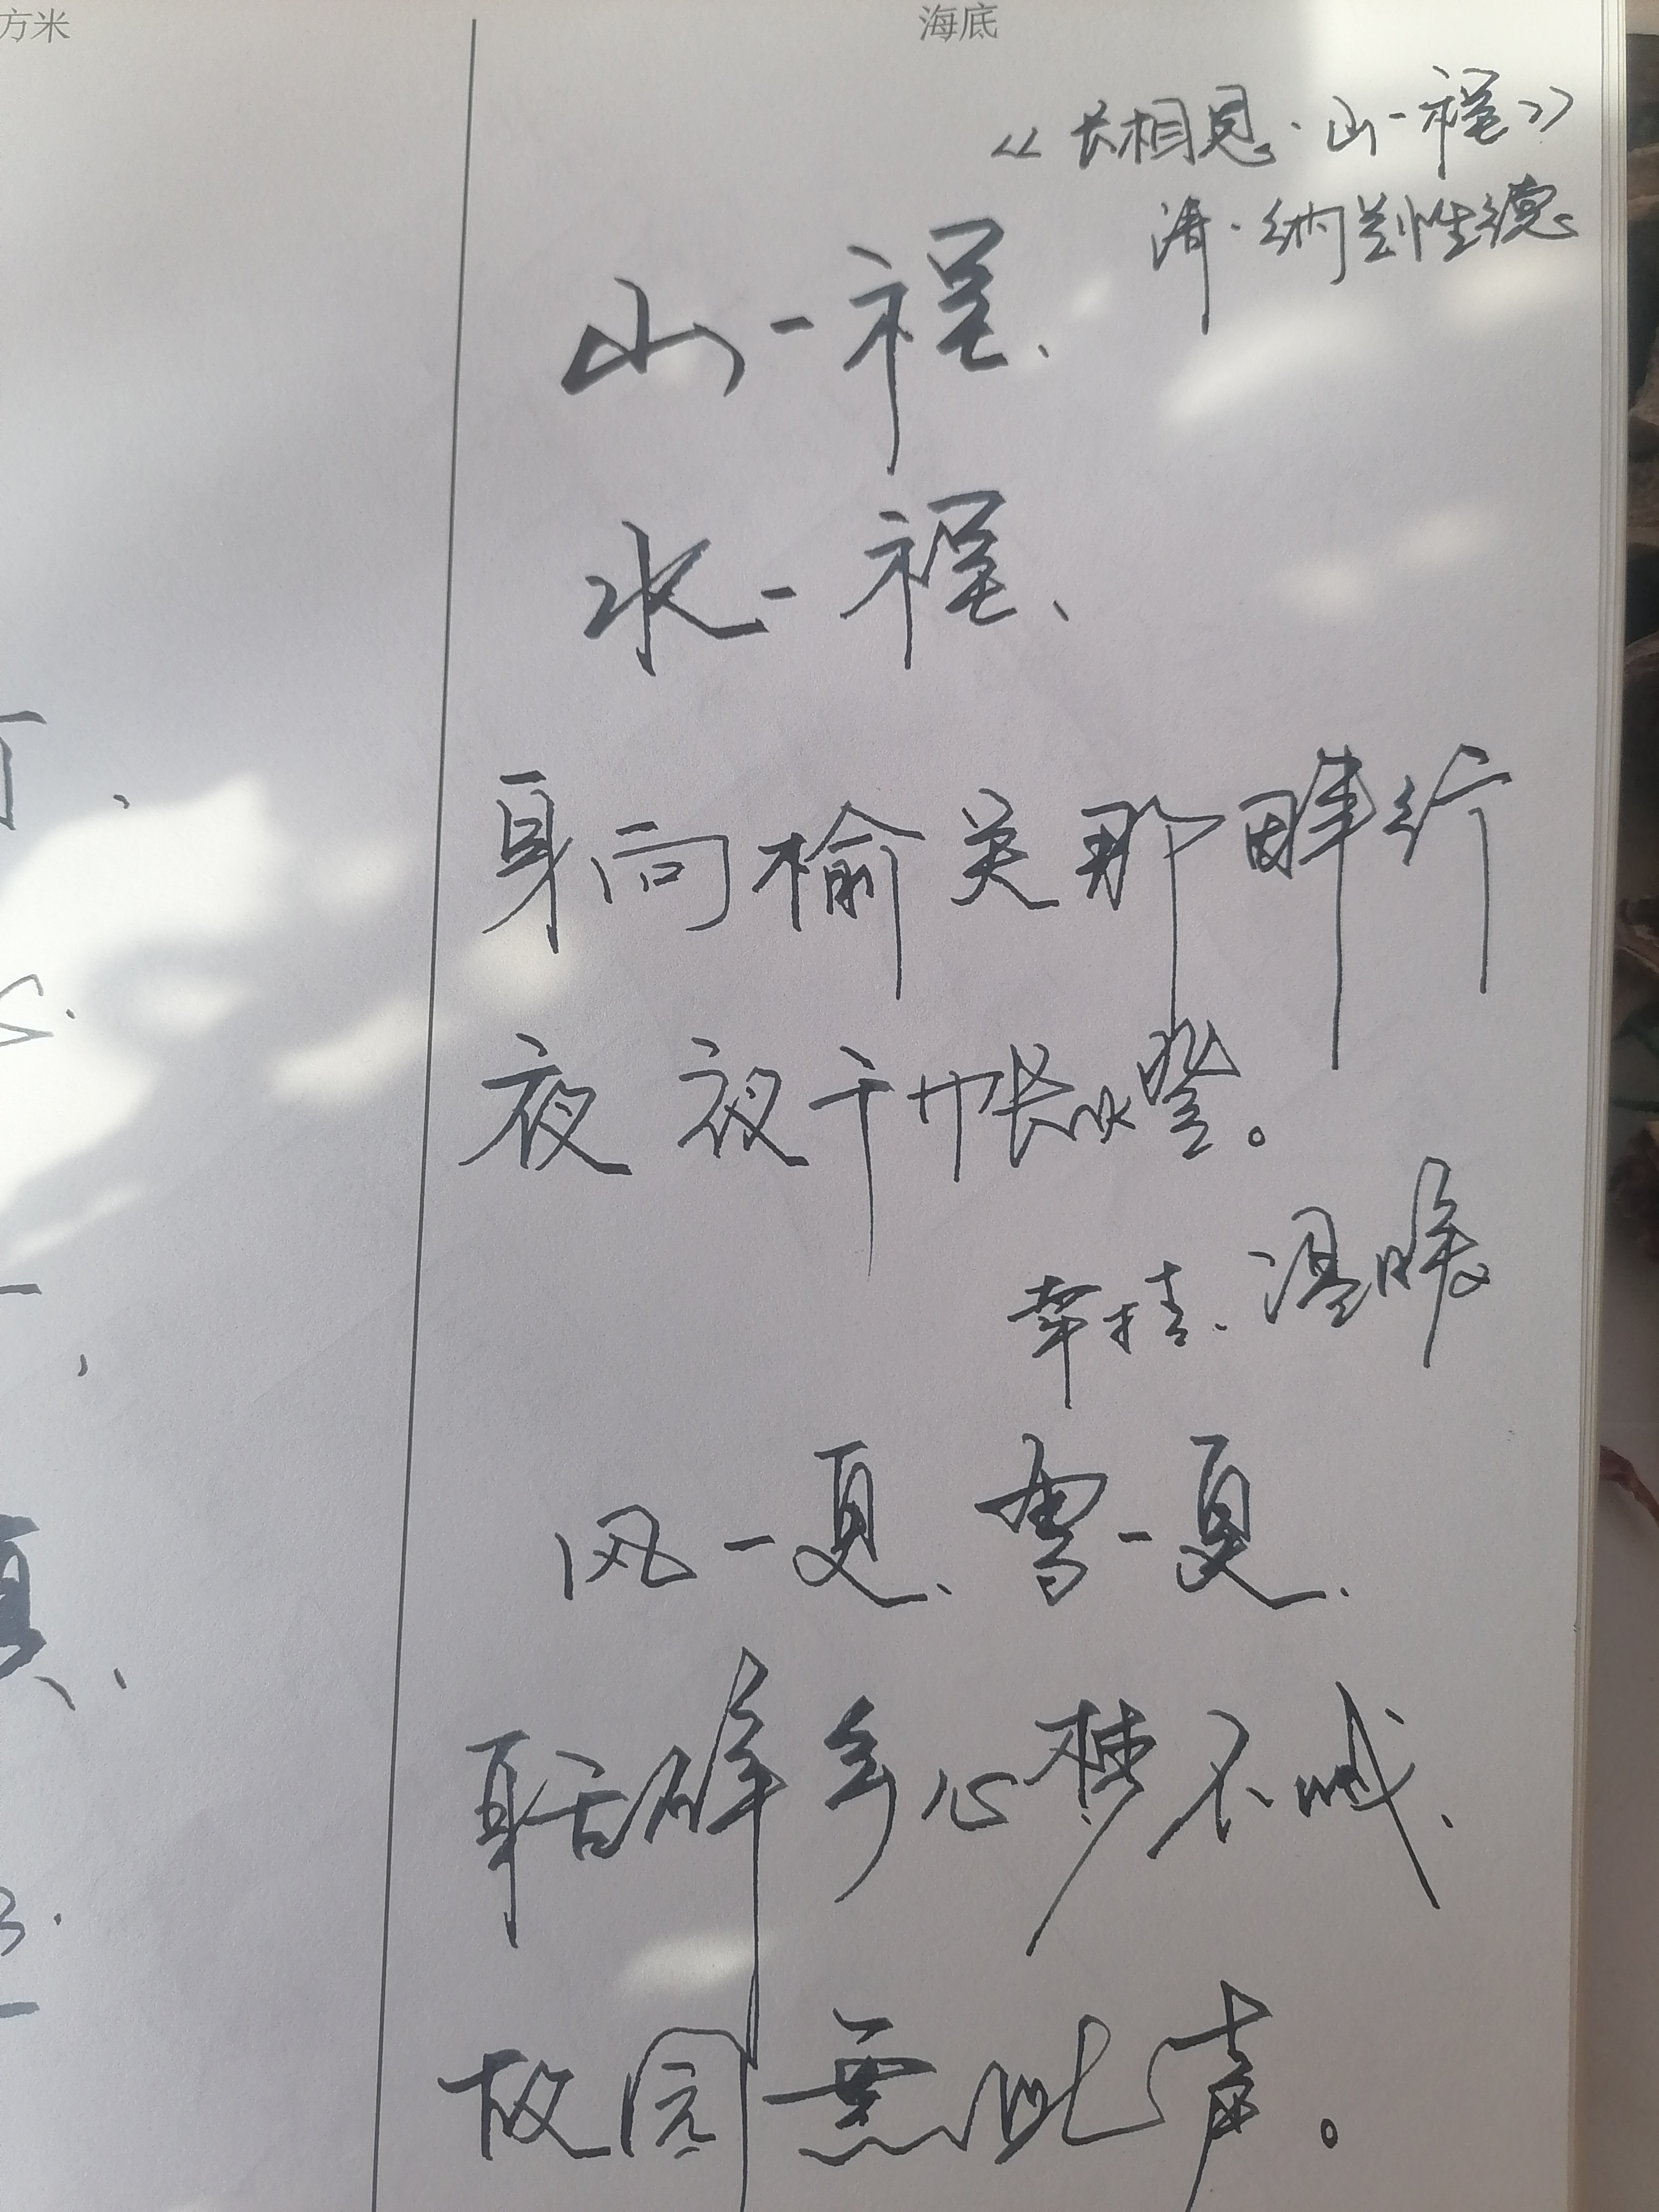 方米
海底
《长相思·山一程》
清·纳兰性德
山一程、
水一程、
身向榆关那畔行
夜夜千帐燈。
牵挂、温暖
风一更、雪一更、
聒碎乡心梦不成、
故园無此声。